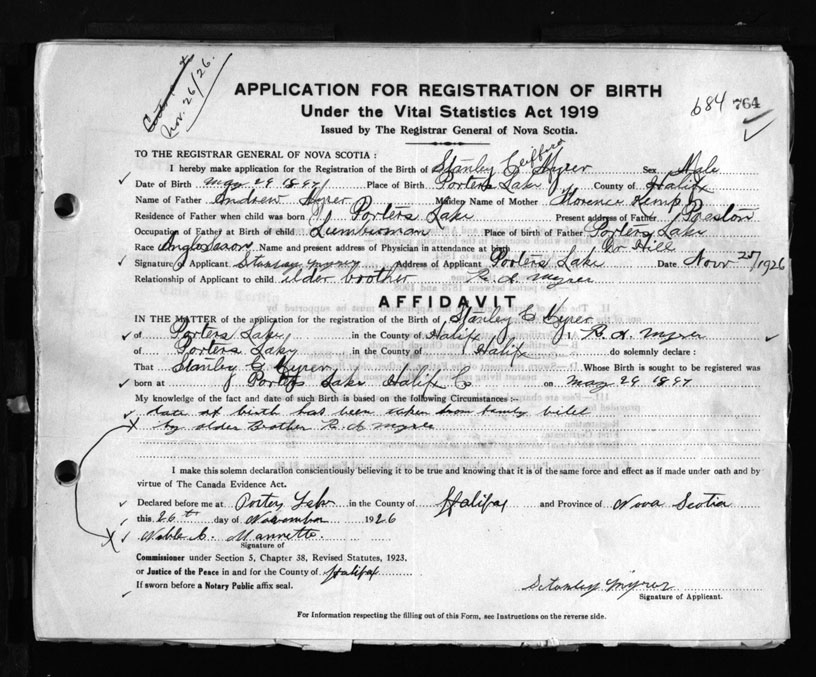 Nov. 26/26.
APPLICATION FOR REGISTRATION OF BIRTH
684 764
Under the Vital Statistics Act 1919
Issued by The Registrar General of Nova Scotia.
TO THE REGISTRAR GENERAL OF NOVA SCOTIA :
I hereby make application for the Registration of the Birth of Stanley Clifford Myrer Sex Male
Date of Birth May 29 1897 Place of Birth Porters Lake County of Halifx
Name of Father Andrew Myrer Maiden Name of Mother Florence Kemp
Residence of Father when child was born Porters Lake Present address of Father Preston
Occupation of Father at Birth of child Lumberman Place of birth of Father Porters Lake
Race Anglo Saxon Name and present address of Physician in attendance at birth Dr Hill
Signature of Applicant Stanley Myrer Address of Applicant Porters Lake Date Novr 25/1926
Relationship of Applicant to child elder boother R A Myrer
AFFIDAVIT
IN THE MATTER of the application for the registration of the Birth of Stanley C Myrer
of Porters Lake in the County of Halifx I, R. A. Myrer
of Porters Lake in the County of Halifx do solemnly declare :
That Stanley C Myrer Whose Birth is sought to be registered was
born at Porters Lake Halifx Co on May 29 1897
My knowledge of the fact and date of such Birth is based on the following Circumstances :-
date of birth has been taken from family bibel
by older Brother R A Myrer
I make this solemn declaration conscientiously believing it to be true and knowing that it is of the same force and effect as if made under oath and by
virtue of The Canada Evidence Act.
Declared before me at Porters Lake in the County of Halifax and Province of Nova Scotia
this 26th day of November 1926
Noble C. Mannette.
Signature of
Commissioner under Section 5, Chapter 38, Revised Statutes, 1923.
or Justice of the Peace in and for the County of Halifax
If sworn before a Notary Public affix seal.
Stanley Myrer
Signature of Applicant.
For Information respecting the filling out of this Form, see Instructions on the reverse side.